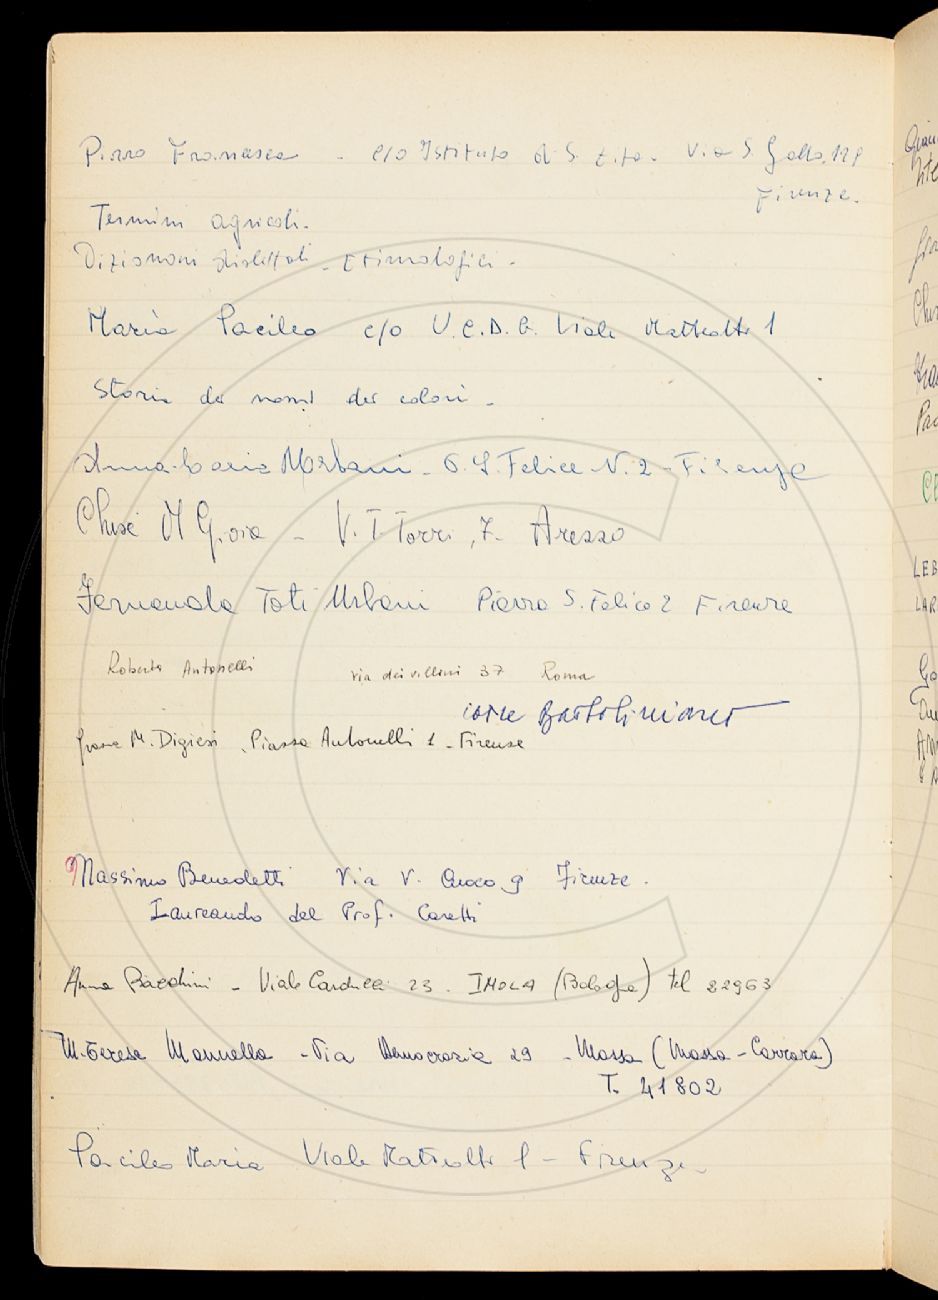 Pirro Francesca - c/o Istituto di S. Zita. Via S. Gallo,
Firenze.
Termini agricoli.
Dizionari dialettali - Etimologici -
Maria Pacileo c/o U.C.D.G. Viale Matteotti 1
Storia dei nomi dei colori -
Anna Maria Urbani - P. S. Felice N. 2 - Firenze
M Gioia - V. T. Torri, 7. Arezzo
Fernanda Toti Urbani Piazza S. Felice 2 Firenze
Roberto Antonelli via dei villini 37 Roma
Bartolini
M. Digiesi, Piazza Antonelli 1 - Firenze
Massimo Benedetti Via V. Cuoco 9 Firenze.
Laureando del Prof. Caretti
Anna - Viale Carducci 23. IMOLA (Bologna) tel 22963
M. Teresa Mannella - Via Democrazia 29 - Massa (Massa - Carrara)
T. 41802
Pacileo Maria Viale Matteotti 1 - Firenze -